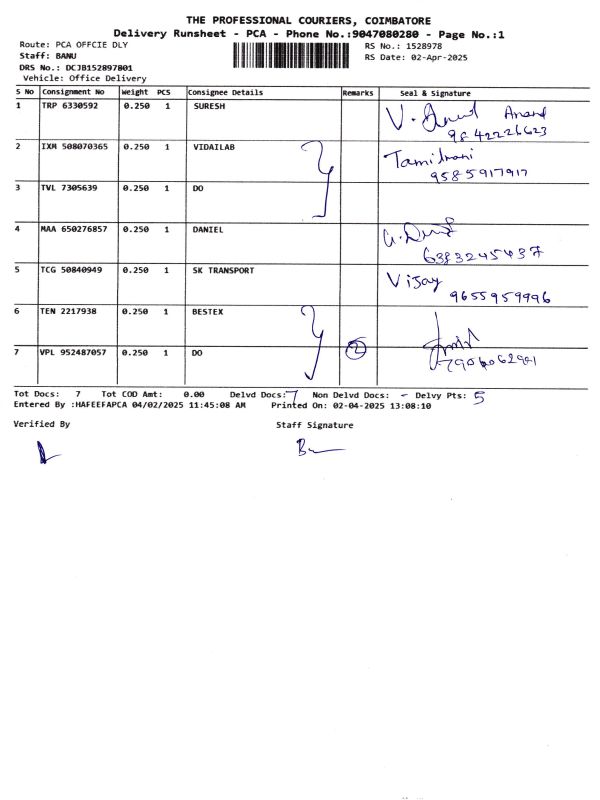 THE PROFESSIONAL COURIERS, COIMBATORE
Delivery Runsheet - PCA - Phone No.:9047080280 - Page No.:1
Route: PCA OFFCIE DLY RS No.: 1528978
Staff: BANU RS Date: 02-Apr-2025
DRS No.: DCJB152897801
Vehicle: Office Delivery
S No Consignment No Weight PCS Consignee Details Remarks Seal & Signature
1 TRP 6330592 0.250 1 SURESH V. Anand Anand
9842226623
2 IXM 508070365 0.250 1 VIDAILAB Tamilmani
9585917917
3 TVL 7305639 0.250 1 DO
4 MAA 650276857 0.250 1 DANIEL
6383245437
5 TCG 50840949 0.250 1 SK TRANSPORT Vijay
9655959996
6 TEN 2217938 0.250 1 BESTEX
7 VPL 952487057 0.250 1 DO 2
Tot Docs: 7 Tot COD Amt: 0.00 Delvd Docs: 7 Non Delvd Docs: - Delvy Pts: 5
Entered By :HAFEEFAPCA 04/02/2025 11:45:08 AM Printed On: 02-04-2025 13:08:10
Verified By Staff Signature